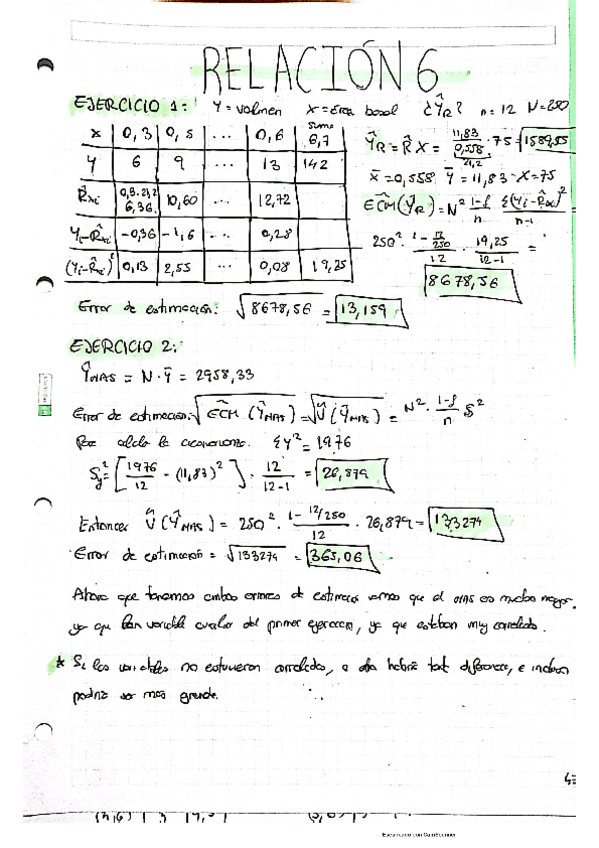 RELACIÓN 6
EJERCICIO 1: Y = volumen X = área basal ¿ŶR? n = 12 N = 250
x | 0,3 | 0,5 | ... | 0,6 | suma 6,7
y | 6 | 9 | ... | 13 | 142
R̂xi | 0,3·21,2 6,36 | 10,60 | ... | 12,72
Yi-R̂xi | -0,36 | -1,6 | ... | 0,28
(Yi-R̂xi)² | 0,13 | 2,55 | ... | 0,08 | 19,25
ŶR = R̂ X = 11,83/0,558 · 75 =
21,2
x̄ = 0,558 ȳ = 11,83 X = 75
ECM(ŶR) = N² 1-f/n Σ(Yi-R̂xi)²/n-1 =
250² · 1-12/250/12 · 19,25/12-1 =
8678,56
Error de estimación: √8678,56 = 13,159
EJERCICIO 2:
ŶMAS = N · ȳ = 2958,33
Error de estimación: √ECM(ŶMAS) = √V̂(ŶMAS) = N² · 1-f/n S²
calcula la ΣY² = 1976
Sy² = [1976/12 - (11,83)²] · 12/12-1 = 26,879
Entonces V̂(ŶMAS) = 250² · 1-12/250/12 · 26,879 = 133274
Error de estimación = √133274 = 365,06
Ahora que tenemos ambos errores de estimación vemos que el MAS es mucho mayor,
ya que variable del primer ejercicio, ya que estaban muy correladas.
* Si las variables no estuvieran correladas, no habría tanta diferencia, e incluso
podría ser más grande.
Escaneado con CamScanner